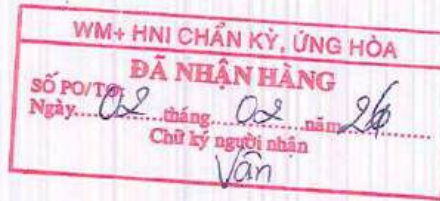 WM+ HNI CHẨN KỲ, ỨNG HÒA
ĐÃ NHẬN HÀNG
SỐ PO/TO:
Ngày...02...tháng...02...năm...26......
Chữ ký người nhận
Vân